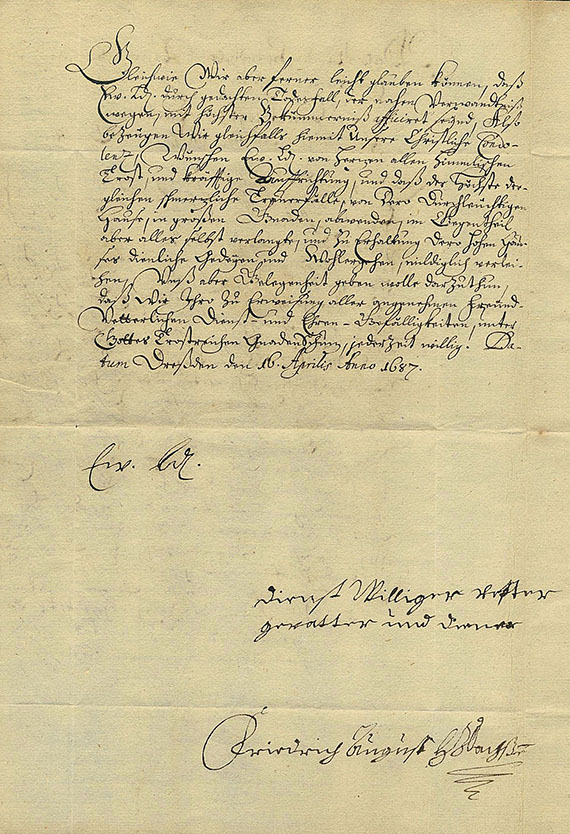 Gleichwie Wir aber ferner leicht glauben können, daß
Ew. Ld. durch gedachten Todesfall, der nahen Verwandtniß
wegen, mit höchster Bekümmerniß afficiret seynd, Alß
bezeugen Wir gleichfalls hiemit Unsere Christliche Condo-
lenz, Wünschen Ew. Ld. von Herzen allen Himmlischen
Trost, und kräfftige Auffrichtung, und daß der Höchste der-
gleichen schmerzliche Trauerfälle, von Dero Durchleuchtigen
Hause, in großen Gnaden, abwenden, im Gegentheil
aber alles selbst verlangte, und zu Erhaltung Dero hohen Hau-
ses dienliche Gedeyen und Wohlergehen, mildiglich verlei-
hen, Unß aber Gelegenheit geben wolle darzuthun,
daß Wir Ihro zu Erweisung aller angenehmen Freund-
Vetterlichen Dienst- und Ehren-Gefälligkeiten, unter
Gottes Trostreichen Gnaden Schuz, jederzeit willig. Da-
tum Dreßden den 16. Aprilis Anno 1687.
Ew. Ld.
dienst Williger Vetter
gevatter und diener
Friedrich August H Z Sachßen